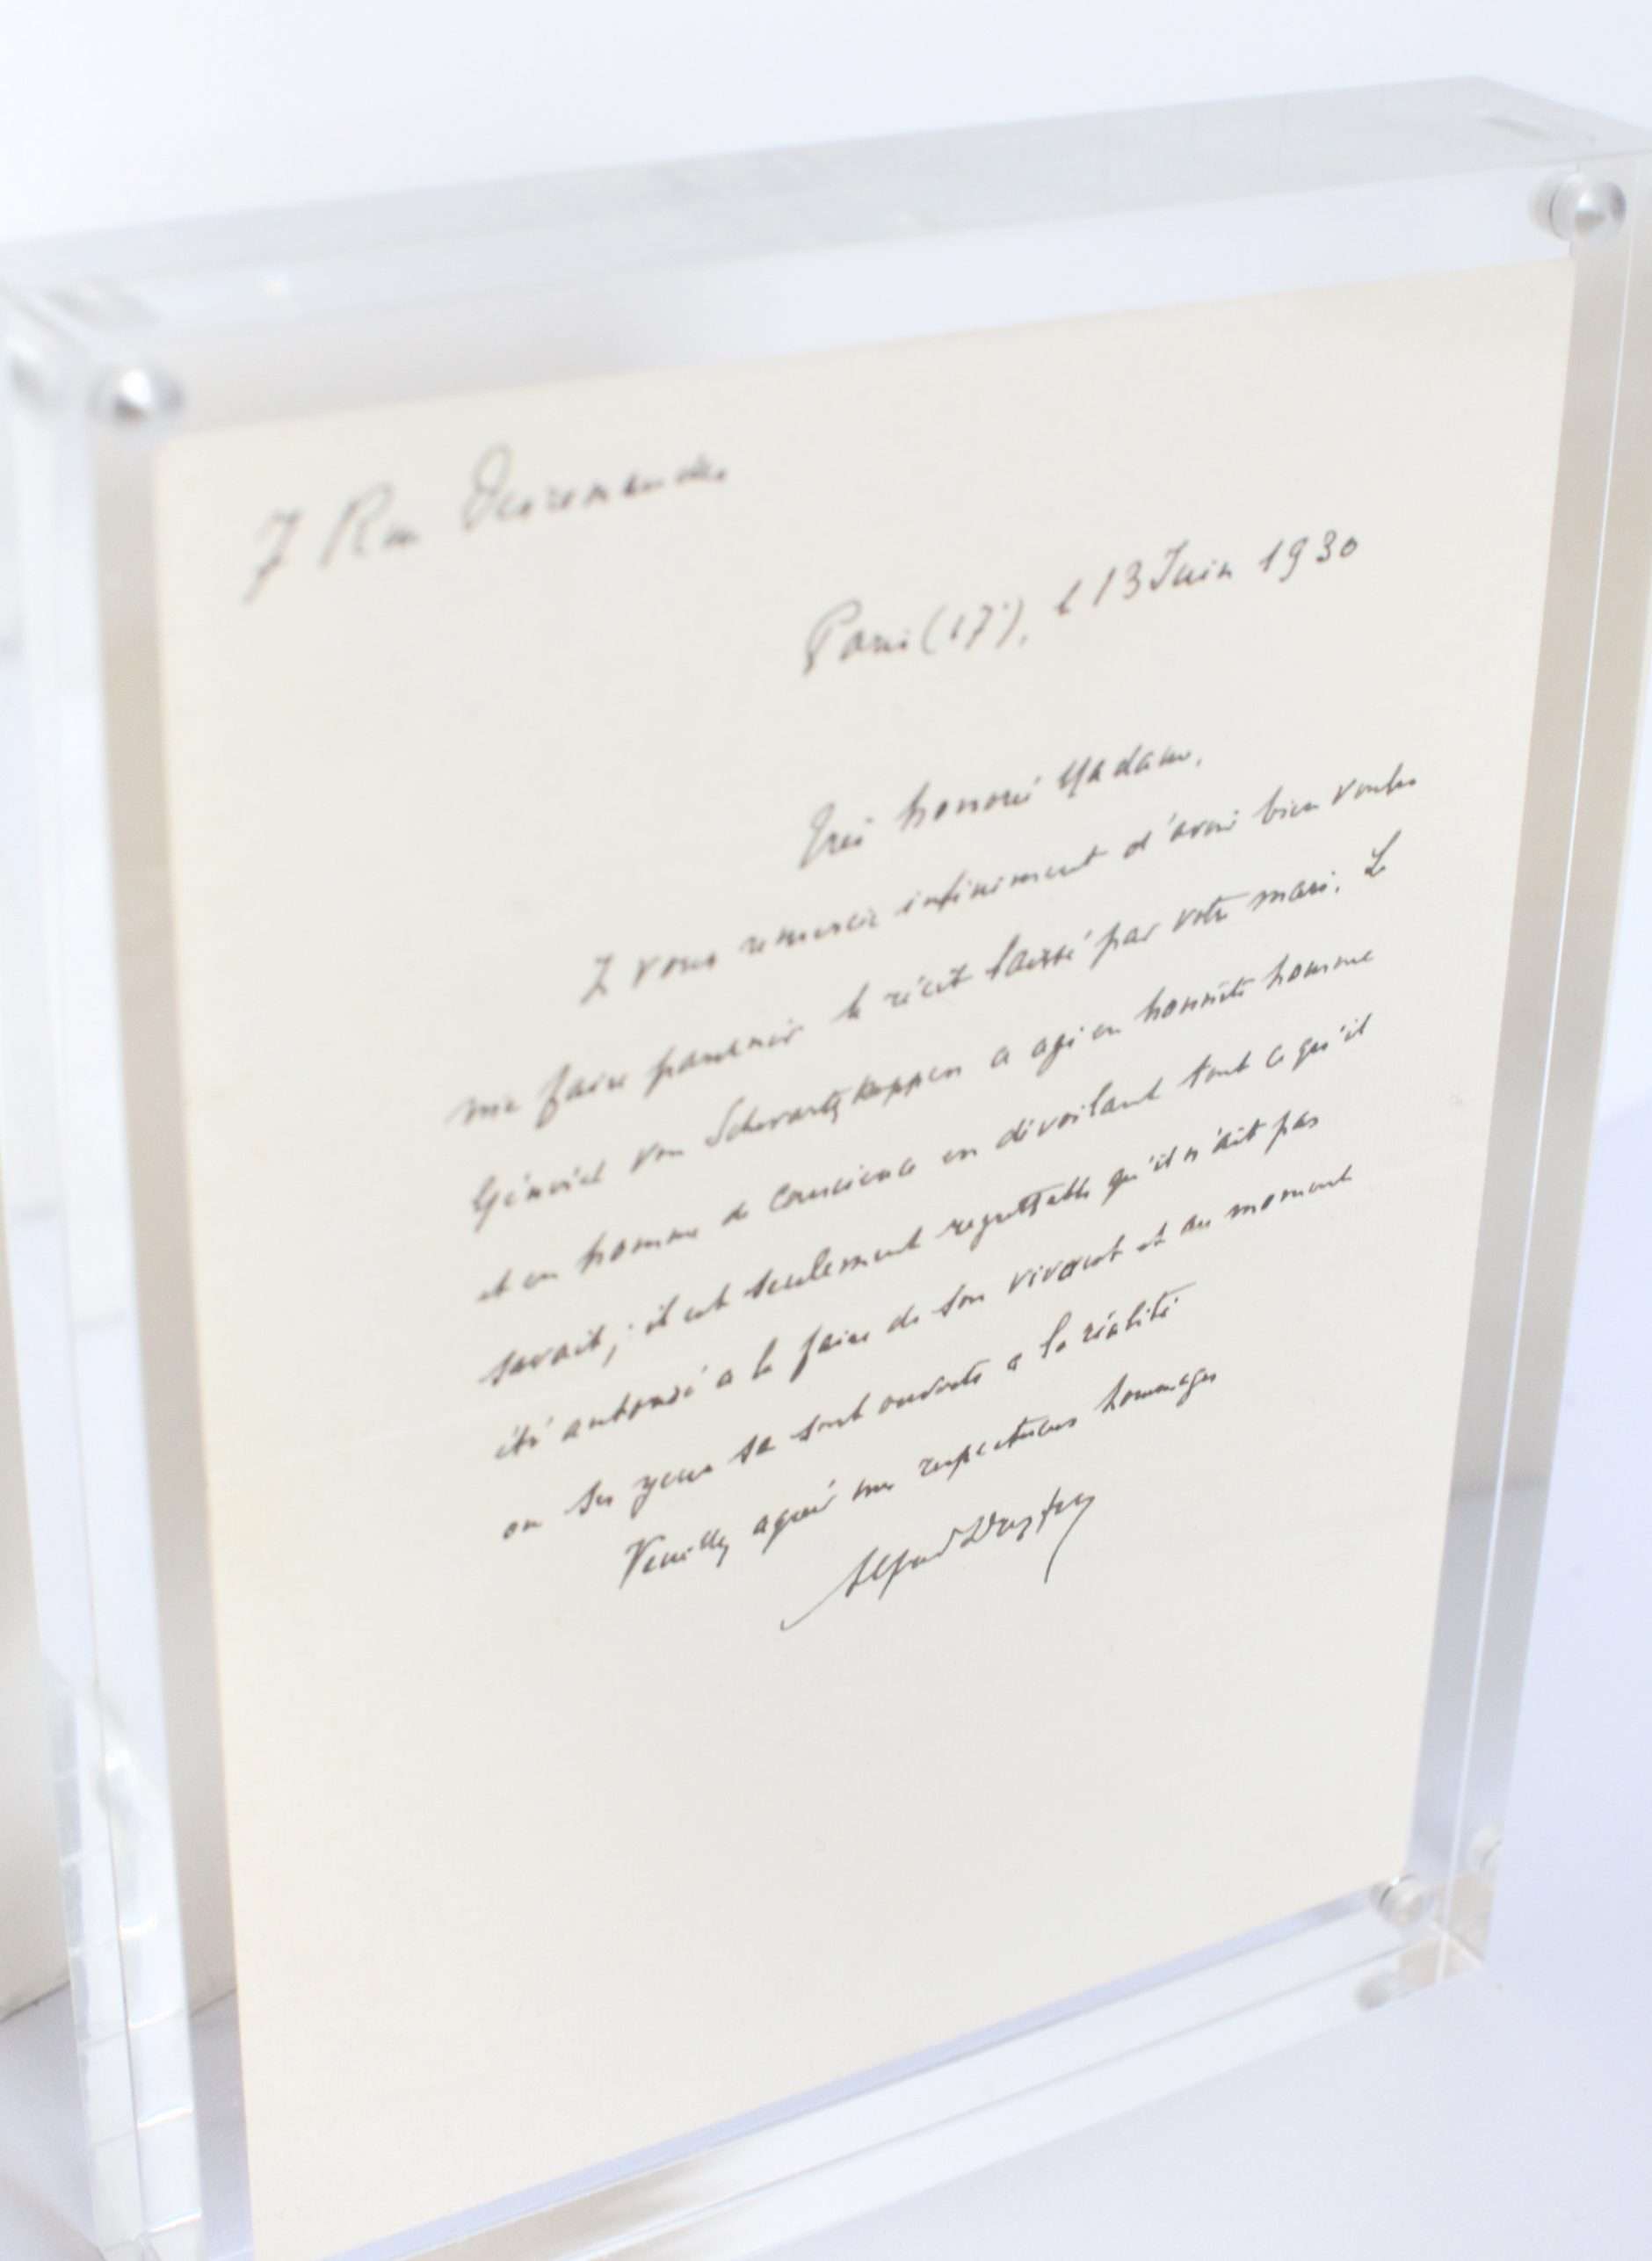 7 Rue Desrenaudes
Paris (17e), le 13 Juin 1930
Très honoré Madame,
Je vous remercie infiniment d'avoir bien voulu
me faire parvenir le récit laissé par votre mari. Le
Général von Schwartzkoppen a agi en honnête homme
et en homme de conscience en dévoilant tout ce qu'il
savait; il est seulement regrettable qu'il n'ait pas
été autorisé à le faire de son vivant et au moment
où ses yeux se sont ouverts à la réalité
Veuillez agréer mes respectueux hommages
Alfred Dreyfus